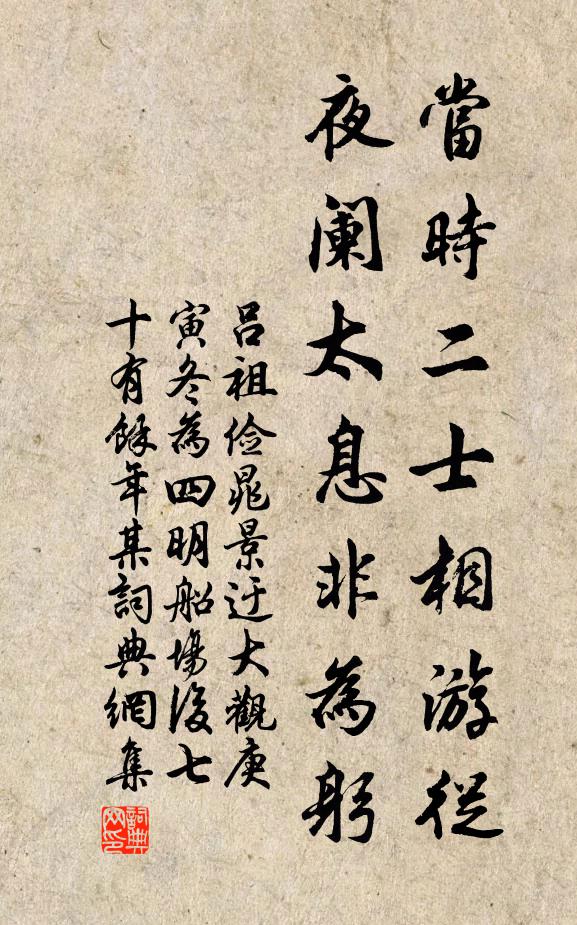 當時二士相游從
夜阑太息非為躬
吕祖俭晁景迂大觀庚
寅冬為四明船場後七
十有餘年某詞典網集
詞典網印